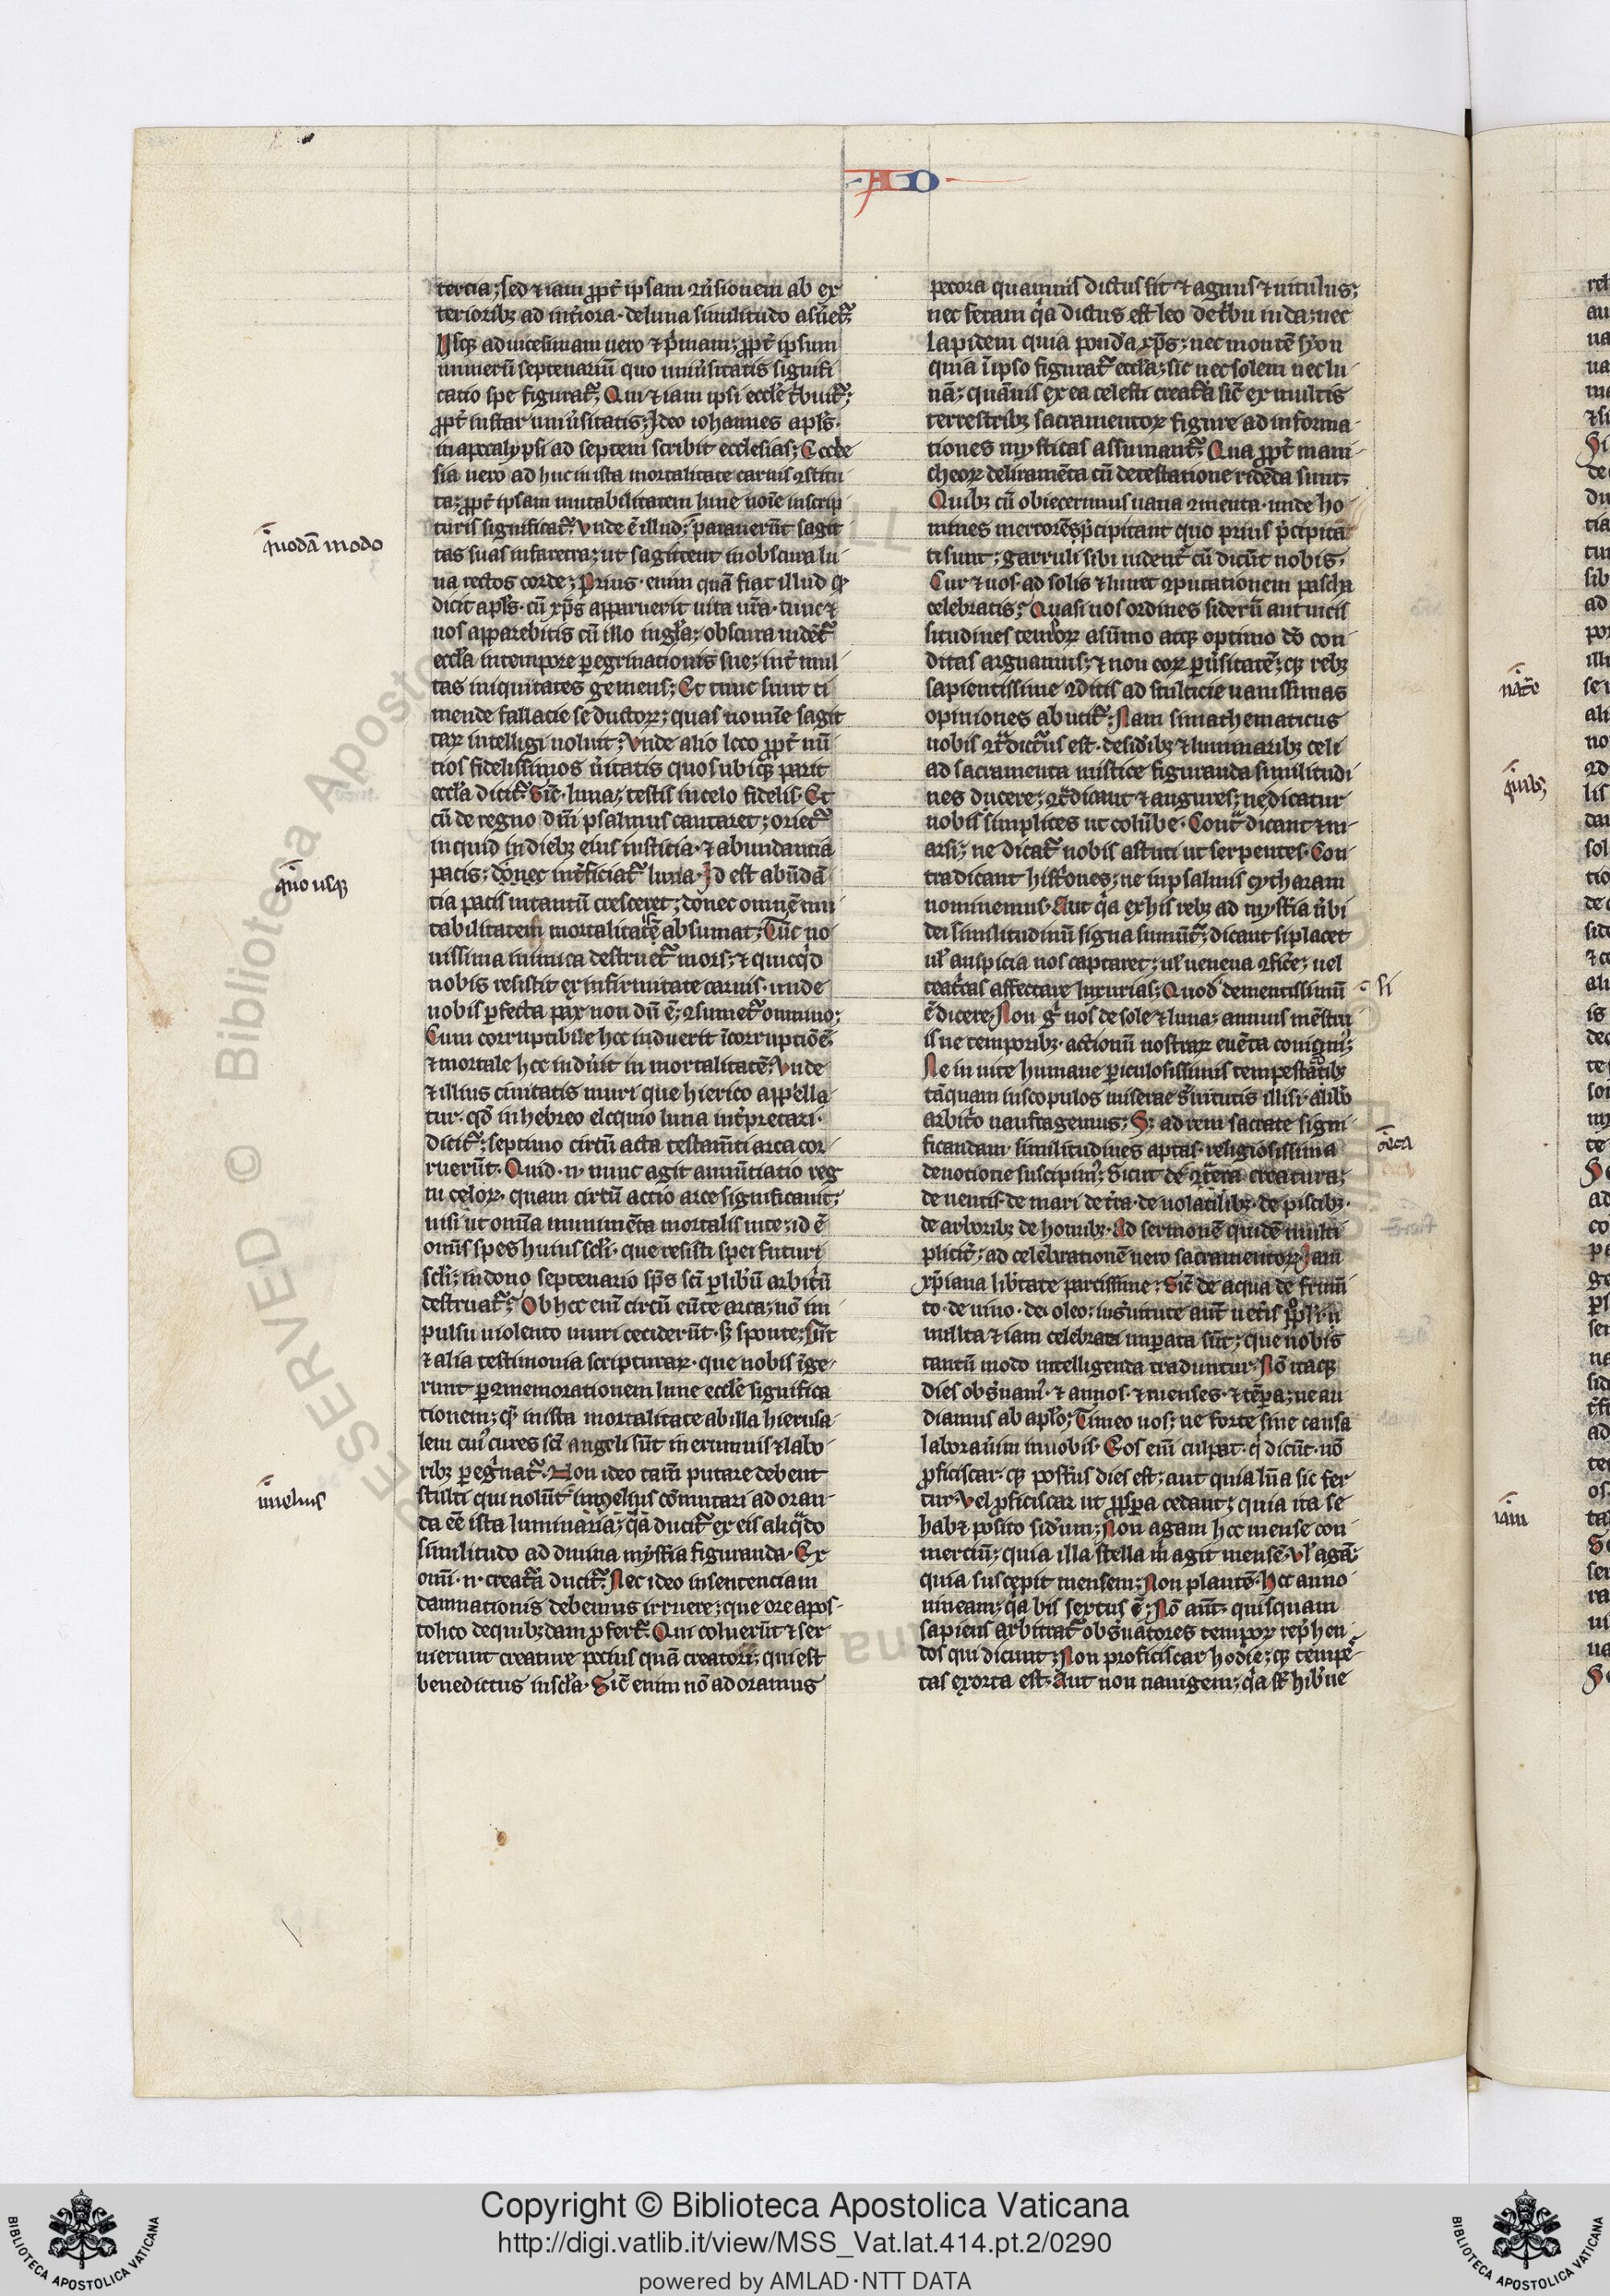 AD
tercia; sed ⁊ iam ꝓpt̄ ipsam ꝯu̓sionem ab ex
terioribꝫ ad int̓iora. de luna similitudo asūet᷑.
Usqꝫ ad uicesimam uero ⁊ p̓mam; ꝓpt̄ ipsum
numerū septenariū quo uniu̓sitatis signifi
catio sepe figurat᷑. Qui ⁊ iam ipsi eccl̓e t̓buit᷑;
ꝓpt̄ instar uniu̓sitatis; Ideo iohannes apl̓s.
in apocalypsi ad septem scribit ecclesias; Eccle
sia uero ad huc in ista mortalitate carnis ꝯstitu
ta; ꝓpt̄ ipsam mutabilitatem lune noīe in scrip
turis significat᷑. Vnde ē illud; parauerūt sagit
tas suas in faretra; ut sagittent in obscura lu
na rectos corde; Prius. enim quā fiat illud qd̓
dicit apl̓s. cū xp̄s apparuerit uita ur̄a. tunc ⁊
uos apparebitis cū illo in gl̓ia; obscura uidet᷑
eccl̓ia in tempore pegrinationis sue; int̓ mul
tas iniquitates gemens; Et tunc sunt ti
mende fallacie se ductoꝝ; quas nomīe sagit
taꝝ intelligi uoluit; Vnde alio loco ꝓpt̄ nū
tios fidelissimos u̓itatis quos ubiqꝫ parit
eccl̓ia dicit᷑. Sic̄. luna; testis in celo fidelis. Et
cū de regno dn̄i psalmus cantaret; oriet᷑
in quid in diebꝫ eius iusticia. ⁊ abundantia
pacis; donec int̓ficiat᷑ luna. Id est abūdā
tia pacis in tantū cresceret; donec omnē mu
tabilitatem mortalitatē absumat; Tūc no
uissima inimica destruet᷑ mors; ⁊ quicqd̓
nobis resistit ex infirmitate carnis. unde
nobis pfecta pax non dū ē; ꝯsumet᷑ omnino;
Cum corruptibile hec induerit īcorruptōēm
⁊ mortale hec indu̓it in mortalitatē; Vnde
⁊ illius ciuitatis muri que hierico appella
tur. qd̓ in hebreo eloquio luna int̓pretari.
dicit᷑; septimo circū acta testam̄ti arca cor
ruerūt. Quid. n. nunc agit annūtiatio reg
ni celoꝝ. quam circū actio arce significauit;
nisi ut omīa munimēta mortalis uite; id ē
om̄s spes huius scl̓i. que resisti spei futuri
scl̓i; in dono septenario sp̄s sc̄i p lib̓ū arbit̓ū
destruat᷑; Ob hec eni circū eūte arca; nō im
pulsu uiolento muri ceciderūt. sꝫ sponte; Sūt
⁊ alia testimonia scripturaꝝ. que nobis īge
runt p ꝯmemorationem lune eccl̓e significa
tionem; q̄ in ista mortalitate ab illa hierusa
lem cui᷒ ciues sc̄i angeli sūt in erumnis ⁊ labo
ribꝫ peg̓nat᷑. Non ideo tam̄ putare debent
stulti qui nolūt in melius cōmutari ad oran
da eē ista luminaria; q̓a ducit᷑ ex eis aliqn̄do
similitudo ad diuina myst̓ia figuranda. Ex
omī. n. creat᷑a ducit᷑. Nec ideo in sentenciam
damnationis debemus irruere; que ore apos
tolico de quibꝫdam ꝓfert᷑. Qui coluerūt ⁊ ser
uierunt creature pocius quā creatori; qui est
benedictus in scl̓a. Sic̄ enim nō ad oramus
pecora quamuis dictus sit ⁊ agnus ⁊ uitulus;
nec feram q̓a dictus est leo de t̓bu iuda; nec
lapidem quia petra xp̄s; nec montē syon
quia ī ipso figurat᷑ eccl̓ia; sic nec solem nec lu
nā; quāuis ex ea celesti creat᷑a sic̄ ex multis
terrestribꝫ sacramentoꝝ figure ad informa
tiones mysticas assumant᷑. Qua ꝓpt̄ mani
cheoꝝ deliramēta cū detestatione ridēda sunt;
Quibꝫ cū obiecerimus uana ꝯmenta. unde ho
mines in errorēs p̓cipitant quo prius p̓cipita
ti sunt; garruli sibi uident᷑ cū dicūt nobis.
Cur ⁊ uos ad solis ⁊ lune ꝯputationem pascha
celebratis; Quasi nos ordines siderū aut uicis
situdines temporꝝ a sūmo atqꝫ optimo dō con
ditas arguamus; ⁊ non eoꝝ pu̓sitatē; qꝫ rebꝫ
sapientissime ꝯditis ad stulticie uanissimas
opiniones ab utit᷑; Nam si mathematicus
nobis ꝯt᷑dictur᷒ est. de sid̓ibꝫ ⁊ luminaribꝫ celi
ad sacramenta mistice figuranda similitudi
nes ducere; ꝯt᷑dicant ⁊ augures; ne dicatur
nobis simplices ut colūbe. Cont᷑ dicant ⁊ m
arsi; ne dicat᷑ nobis astuti ut serpentes. Con
tradicant hist̓ones; ne in psalmis cytharam
nominemus. Aut q̓a ex his rebꝫ ad myst̓ia u̓bi
dei similitudinū signa sumūt᷑; dicant si placet
ul̓ auspicia nos captare; ul̓ uenena ꝯfic̓e; uel
teat̓cas affectare luxurias; Quod dementissimū
ē dicere; Non g̓ nos de sole ⁊ luna; annuis mēstru
is ue temporibꝫ. actionū nostraꝝ euēta conicim᷒;
Ne in uite humane piculosissimis tempestatibꝫ
tāquam in scopulos misere s̓uitutis illisi. a lib̓o
arbit̓o naufragemus; Sꝫ ad rem sacrate signi
ficandam similitudines aptas. religiosissima
deuotione suscipim᷒. Sicut de cet̓a creatura;
de uentis. de mari de t̓ra. de uolatilibꝫ. de piscibꝫ.
de arboribꝫ de hominibꝫ. Ad sermonē quidē multi
plicit̓; ad celebrationē uero sacramentoꝝ. Iam
xp̄iana lib̓tate parcissime; Sic̄ de aqua de frumē
to. de uino. de oleo; in s̓uitute aut̄ uet̓is ppl̓i.
multa ⁊ iam celebrari impata sūt; que nobis
tantū modo intelligenda traduntur. Nō itaqꝫ
dies obs̓uam᷒. ⁊ annos. ⁊ menses. ⁊ tēpora; ne au
diamus ab apl̓o; Timeo uos; ne forte sine causa
laborau̓im in uobis. Eos eni culpat. q̓ dicūt. nō
ꝓficiscar. qꝫ post̓us dies est; aut quia lūa sic fer
tur. Vel ꝓficiscar ut ꝓspa cedant; quia ita se
habꝫ posito sid̓um; Non agam hoc mense con
merciū; quia illa stella m̄ agit mensē. Vl̓ agā;
quia suscepit mensem; Non plantē. hoc anno
uineam; q̓a bis sextus ē; Nō aut̄. quisquam
sapiens arbitrat᷑ obs̓uatores tempoꝝ rep̓hen
dos qui dicunt; Non proficiscar hodie; qꝫ tempe
tas exorta est. Aut non nauigem; q̓a st̄ hib̓ne
q̄uodā modo
q̄uo usqꝫ
īmelius
si
cet̓a
nāt̄e
q̄uibꝫ
iām
Copyright © Biblioteca Apostolica Vaticana
http://digi.vatlib.it/view/MSS_Vat.lat.414.pt.2/0290
powered by AMLAD·NTT DATA
BIBLIOTECA APOSTOLICA VATICANA
BIBLIOTECA APOSTOLICA VATICANA